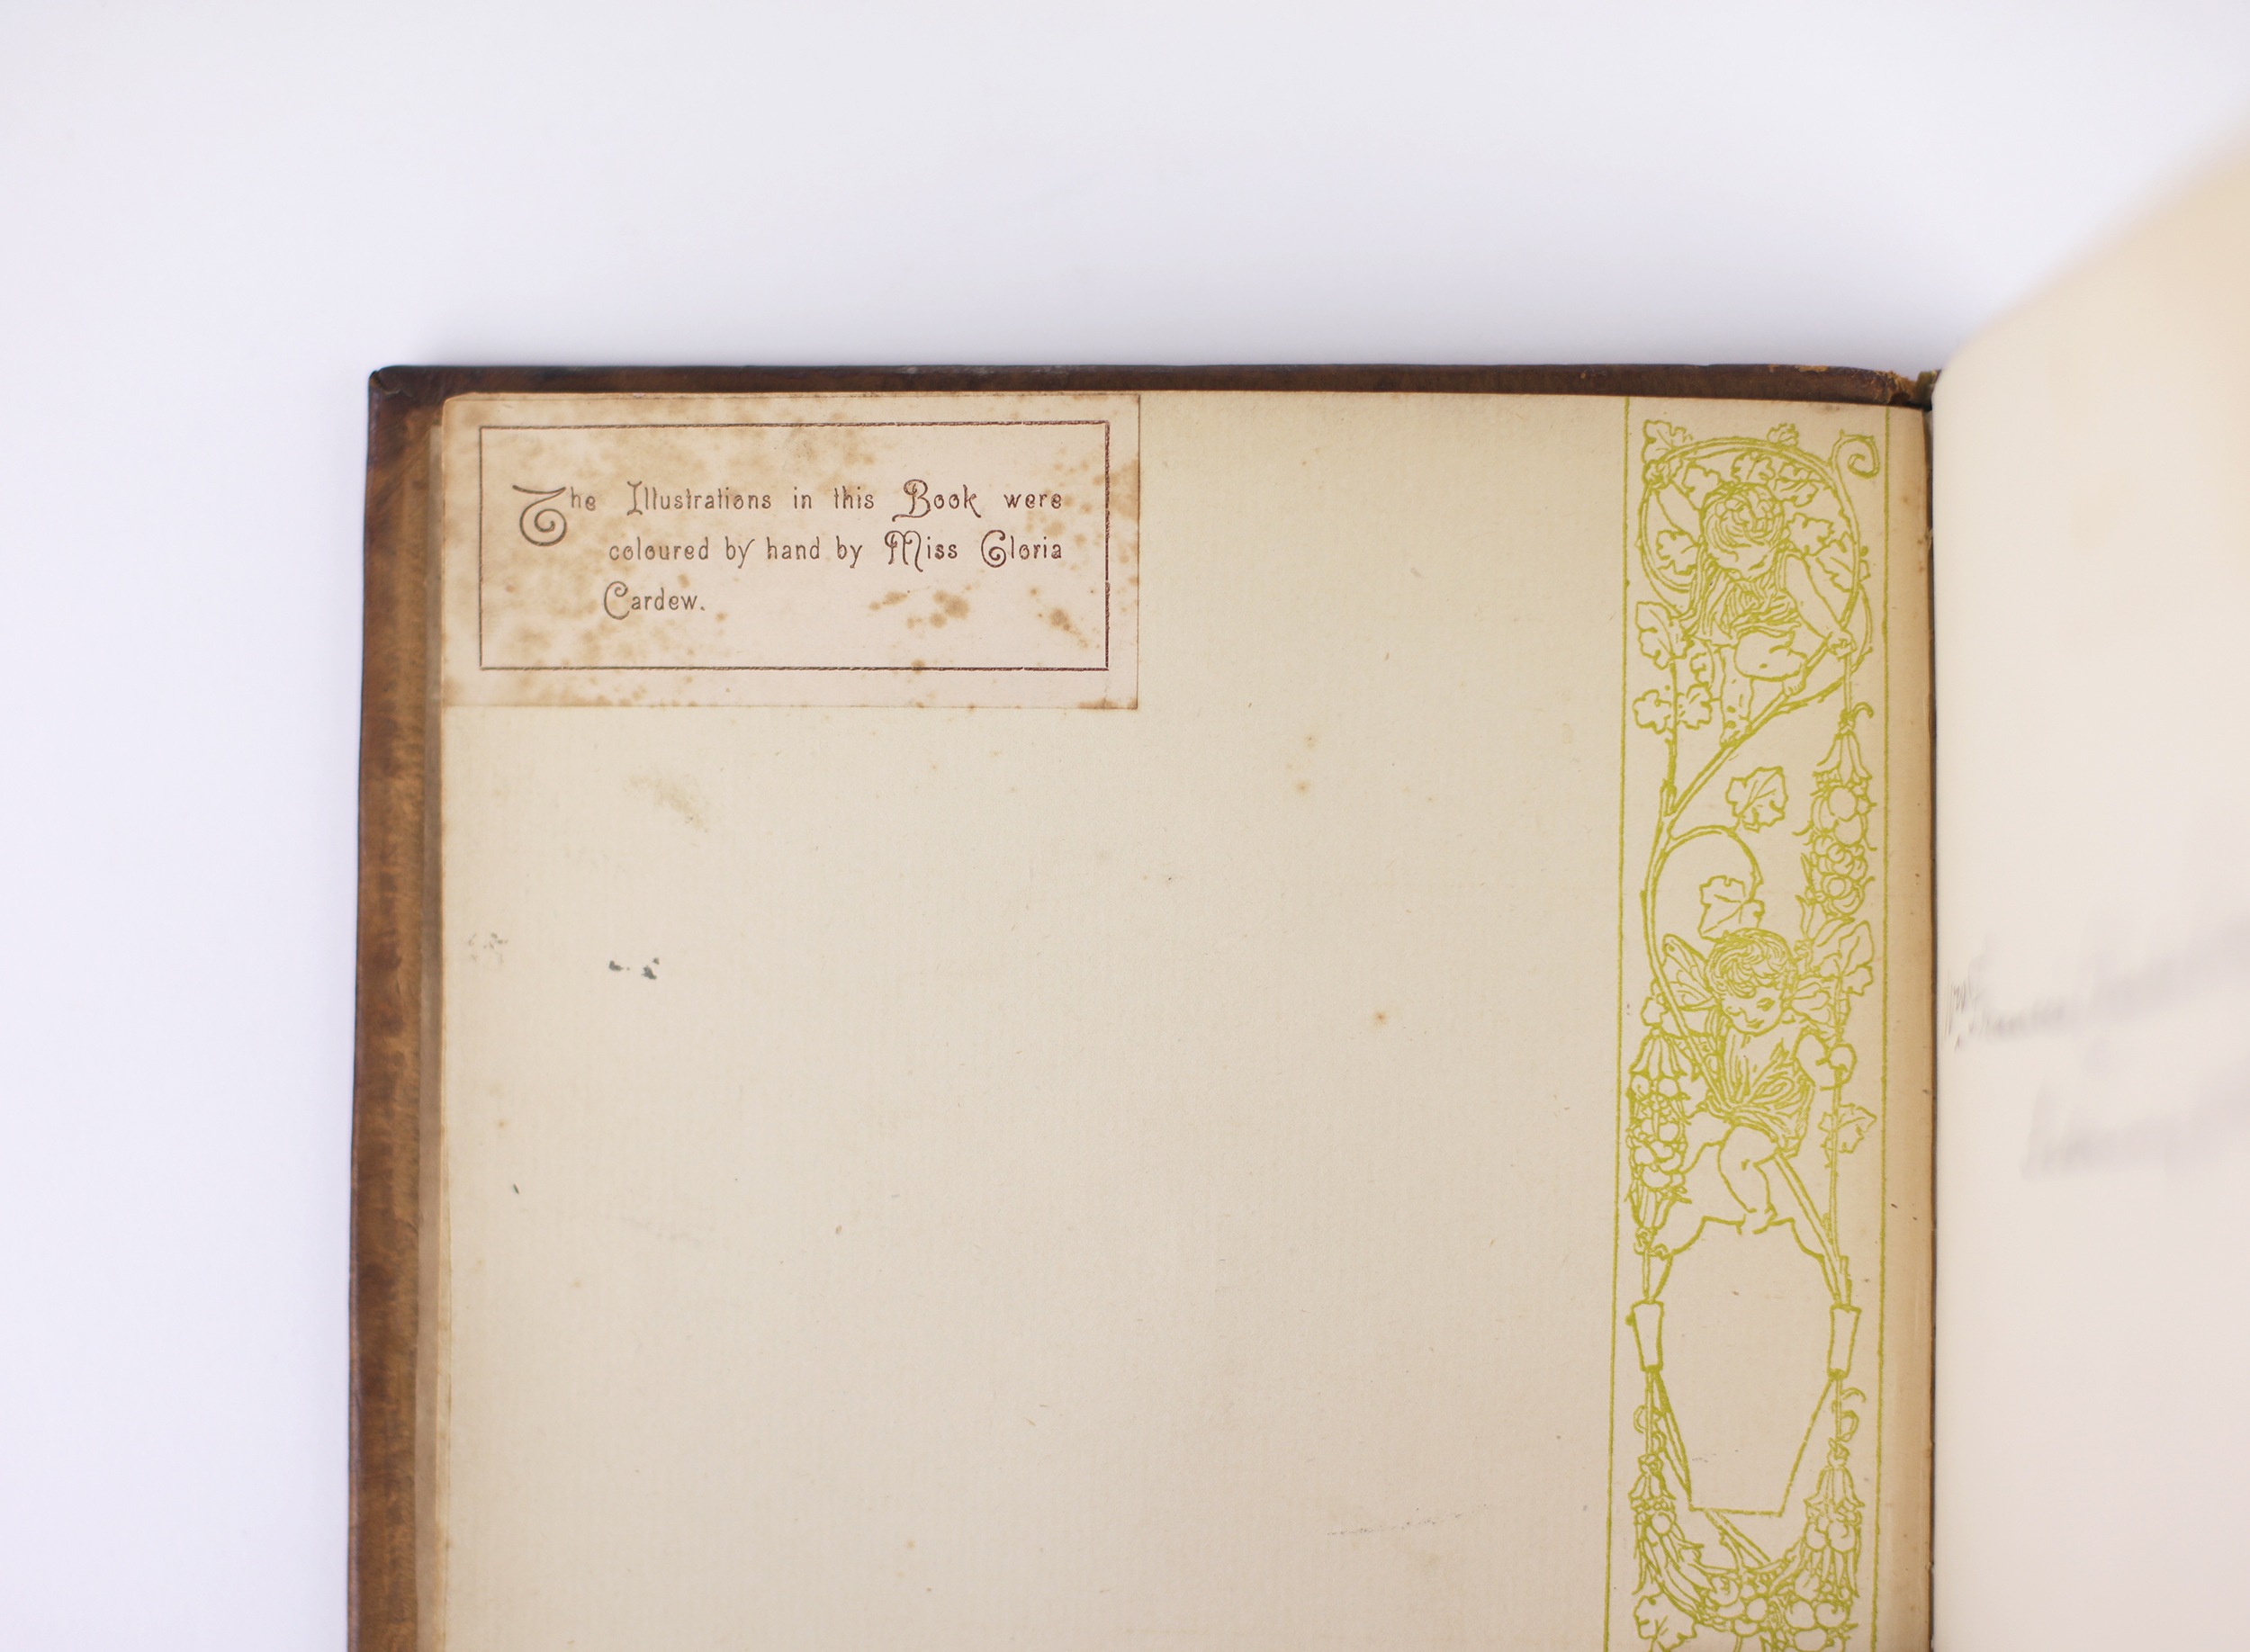 The Illustrations in this Book were
coloured by hand by Miss Gloria
Cardew.